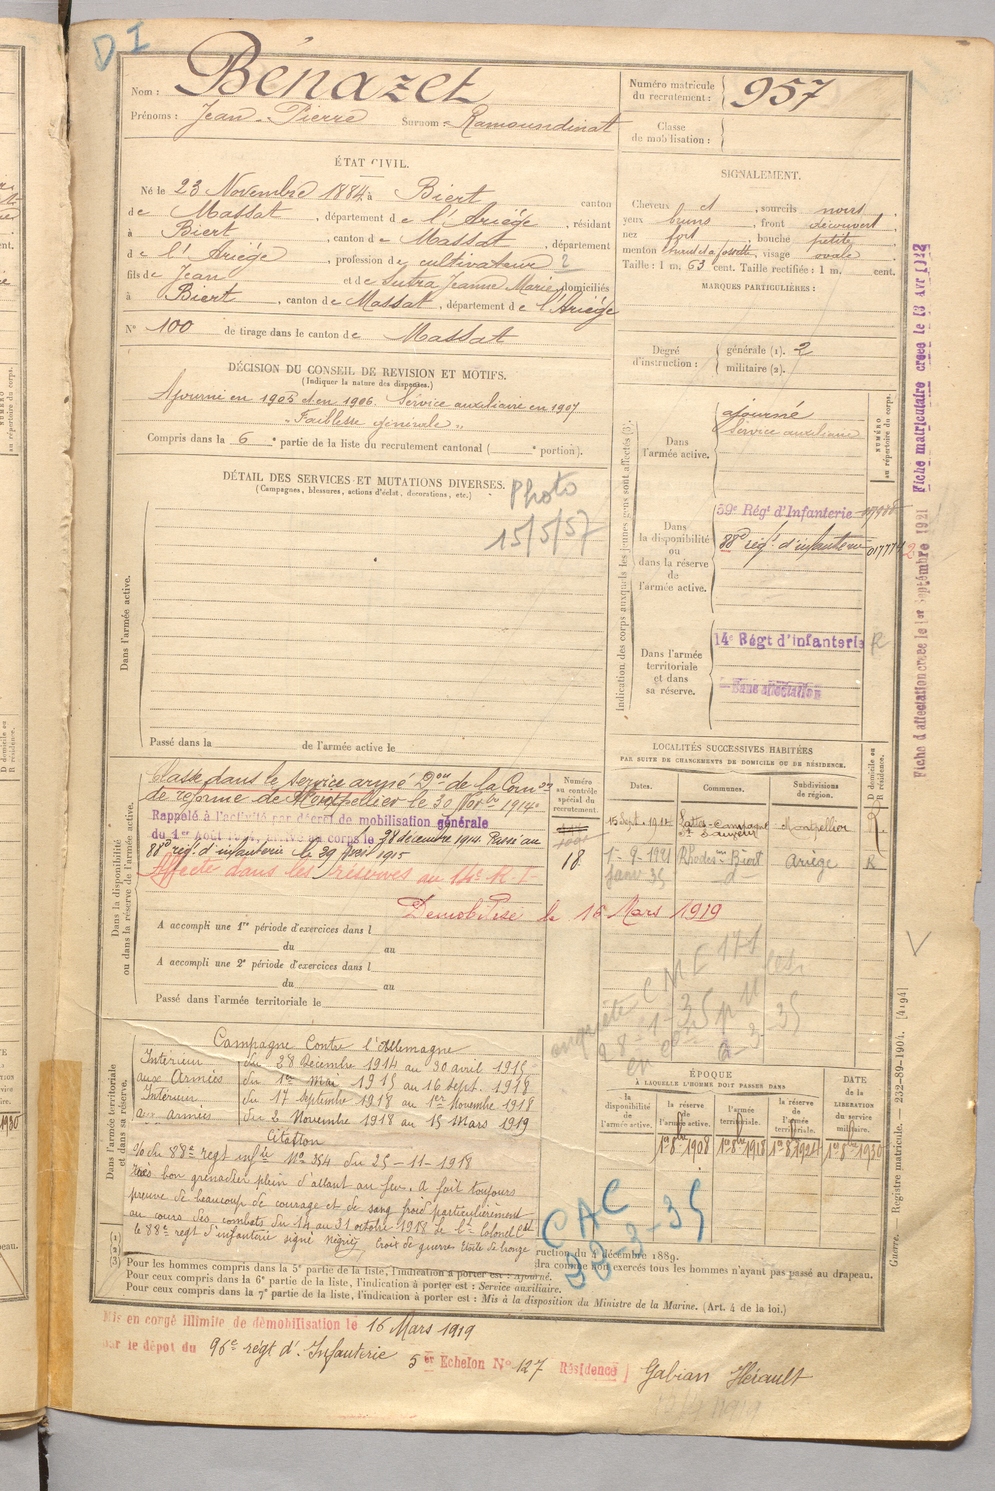 D I
Nom : Bénazet
Prénoms : Jean-Pierre Surnom : Ramoundinat
Numéro matricule du recrutement : 957
Classe de mobilisation :
ÉTAT CIVIL.
Né le 23 Novembre 1884, à Biert canton
de Massat, département de l'Ariège, résidant
à Biert, canton de Massat, département
de l'Ariège, profession de cultivateur 2
fils de Jean et de Sutra Jeanne Marie, domiciliés
à Biert, canton de Massat, département de l'Ariège
N° 100 de tirage dans le canton de Massat
SIGNALEMENT.
Cheveux et, sourcils noirs,
yeux bruns, front découvert,
nez fort, bouche petite,
menton, visage ovale
Taille : 1 m. 63 cent. Taille rectifiée : 1 m. cent.
MARQUES PARTICULIÈRES :
Degré d'instruction : générale (1). 2
militaire (2).
DÉCISION DU CONSEIL DE REVISION ET MOTIFS.
(Indiquer la nature des dispenses.)
Ajourné en 1905 et en 1906. Service auxiliaire en 1907
"Faiblesse générale"
Compris dans la 6e partie de la liste du recrutement cantonal ( e portion).
DÉTAIL DES SERVICES ET MUTATIONS DIVERSES.
(Campagnes, blessures, actions d'éclat, décorations, etc.)
Photo
15/5/57
Dans l'armée active.
Passé dans la de l'armée active le
Indication des corps auxquels les jeunes gens sont affectés (3).
NUMÉRO au répertoire du corps.
Dans l'armée active.
ajourné
Service auxiliaire
Dans la disponibilité ou dans la réserve de l'armée active.
59e Régt d'Infanterie
88e régt d'infanterie 01777
Dans l'armée territoriale et dans sa réserve.
14e Régt d'Infanterie R
Sans affectation
Fiche d'affectation créée le 1er Septembre 1921 Fiche matriculaire créée le
Dans la disponibilité ou dans la réserve de l'armée active.
Classé dans le service armé Don de la Comon
de réforme de Montpellier le 20 Novbre 1914.
Rappelé à l'activité par décret de mobilisation générale
du 1er Août 1914, arrivé au corps le 28 décembre 1914. Passé au
88e rég. d'infanterie le 29 Avril 1915
Affecté dans les réserves au 14e R I
Démobilisé le 16 Mars 1919
A accompli une 1re période d'exercices dans l
du au
A accompli une 2e période d'exercices dans l
du au
Passé dans l'armée territoriale le
Numéro au contrôle spécial du recrutement.
18
LOCALITÉS SUCCESSIVES HABITÉES
PAR SUITE DE CHANGEMENTS DE DOMICILE OU DE RÉSIDENCE.
Dates. Communes. Subdivisions de région. D domicile ou R résidence.
15 Sept. 1912 Lattes-Campagne St Sauveur Montpellier R
1-9-1921 Biert Ariège R
Janv 35 d°
Dans l'armée territoriale et dans sa réserve.
Campagne Contre l'Allemagne
Intérieur du 28 Décembre 1914 au 30 avril 1915
aux Armées du 1er Mai 1915 au 16 Sept. 1918
Intérieur du 17 Septembre 1918 au 1er Novembre 1918
aux armées du 2 Novembre 1918 au 15 Mars 1919
Citation
O/o du 88e regt infie N° 354 du 25-11-1918
Très bon grenadier plein d'allant au feu. A fait toujours
preuve de beaucoup de courage et de sang froid particulièrement
au cours des combats du 14 au 31 octobre 1918 Le Lt Colonel Cdt
le 88e regt d'infanterie signé Croix de guerre Etoile de bronze
CAC
ÉPOQUE
À LAQUELLE L'HOMME DOIT PASSER DANS
la disponibilité de l'armée active. la réserve de l'armée active. l'armée territoriale. la réserve de l'armée territoriale.
DATE de la LIBÉRATION du service militaire.
1er 8bre 1908 1er 8bre 1918 1er 8bre 1924 1er 8bre 1930
ruction du 4 décembre 1889.
dra comme non exercés tous les hommes n'ayant pas passé au drapeau.
(1)
(2)
(3) Pour les hommes compris dans la 5e partie de la liste, l'indication à porter est : Ajourné.
Pour ceux compris dans la 6e partie de la liste, l'indication à porter est : Service auxiliaire.
Pour ceux compris dans la 7e partie de la liste, l'indication à porter est : Mis à la disposition du Ministre de la Marine. (Art. 4 de la loi.)
Guerre. Registre matricule. — 232-89-1904. [4194]
Mis en congé illimité de démobilisation le 16 Mars 1919
par le dépôt du 96e régt d'Infanterie 5e Echelon N° 127 Résidence Gabian Hérault